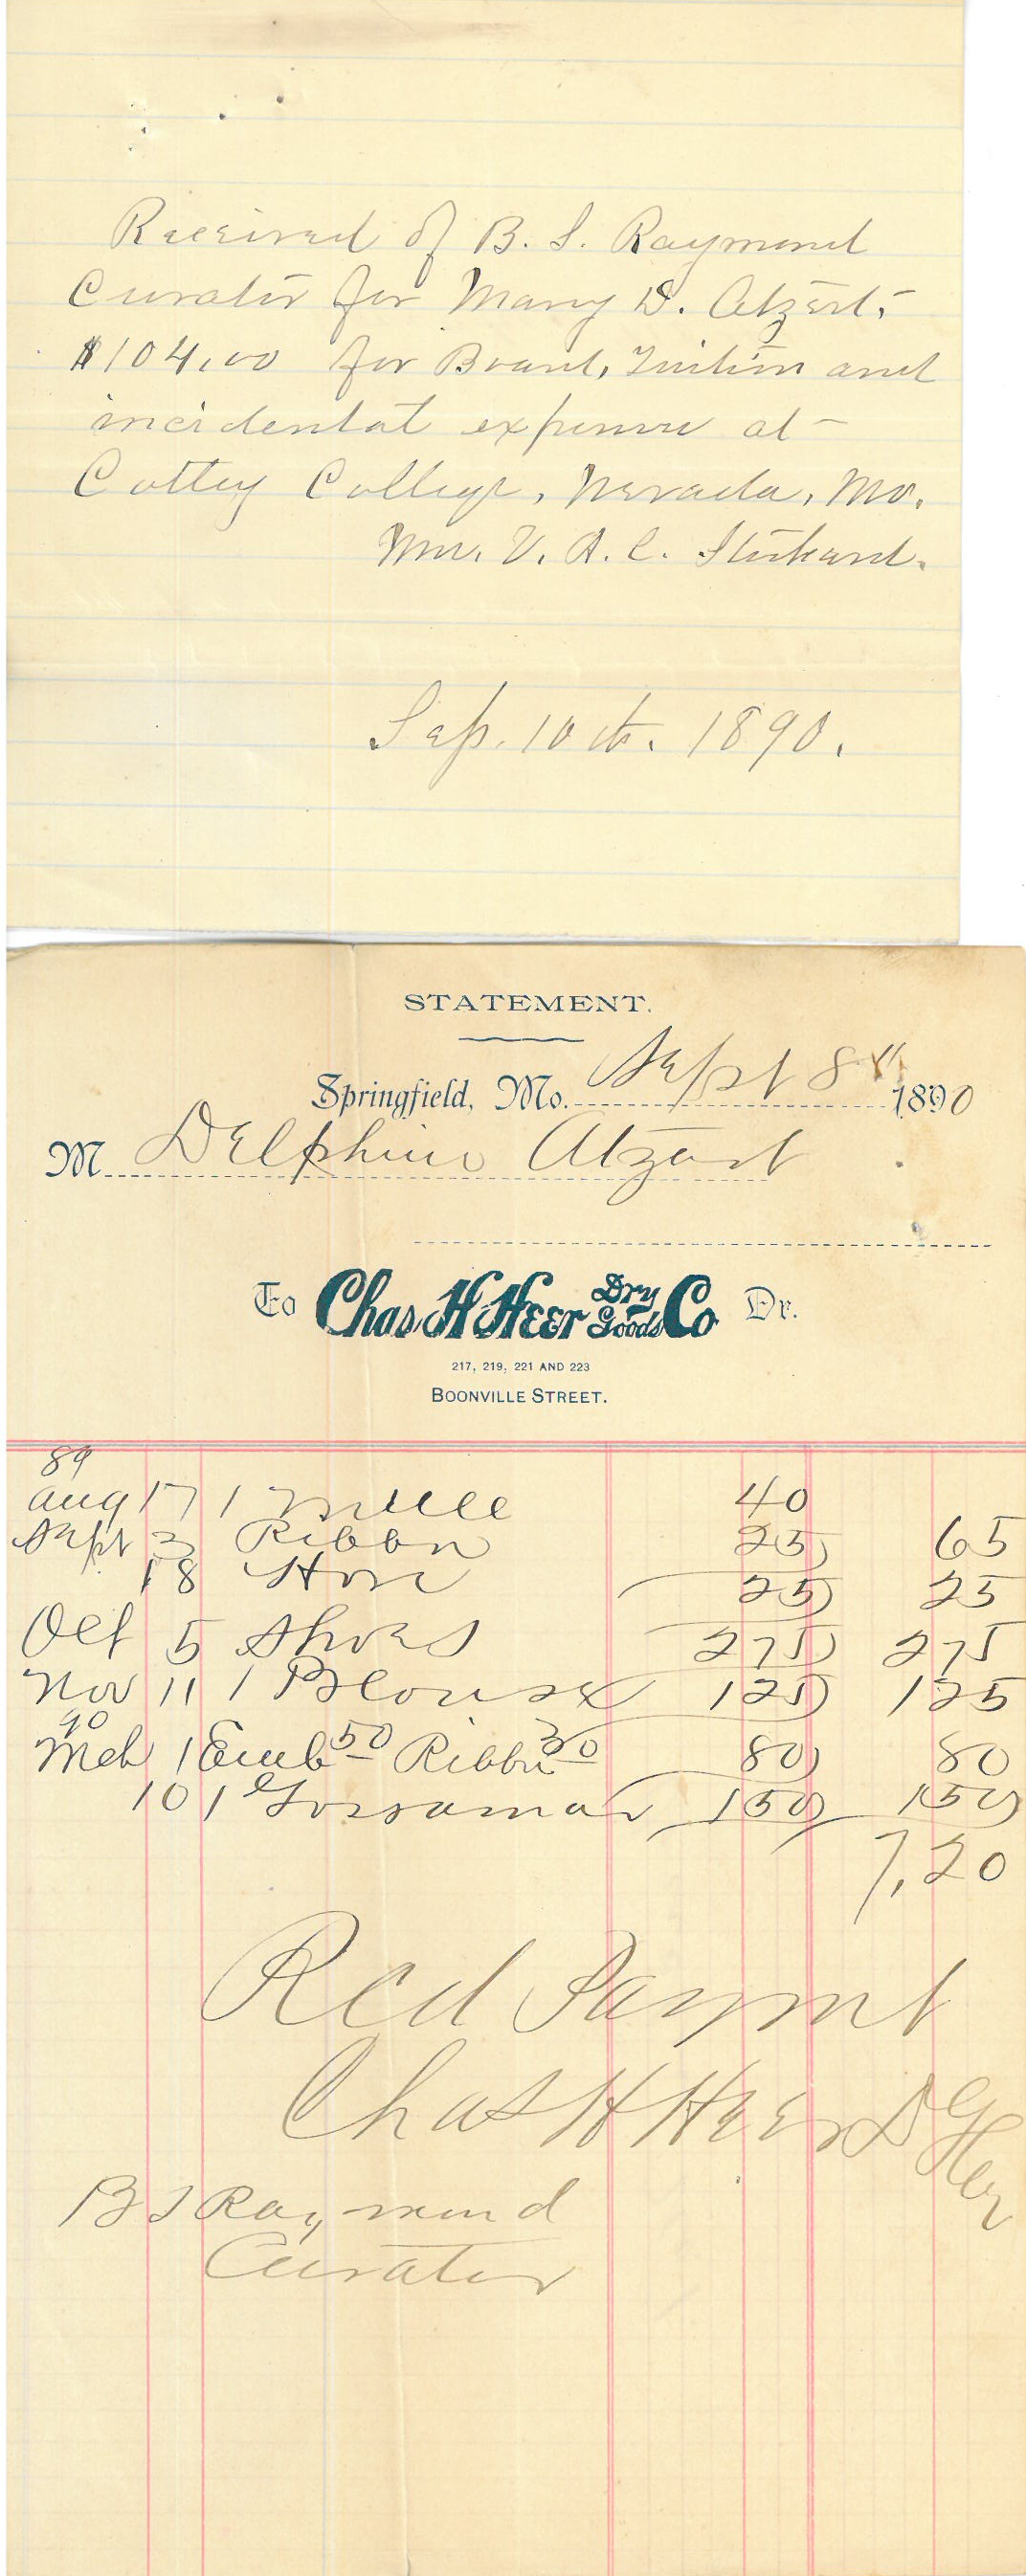 Received of B. S. Raymond
Curator for Mary D. Atzert,
$104.00 for Board, Tuition and
incidental expense at
Cottey College, Nevada, Mo.
Mrs. V. A. C. Stockard.
Sep. 10th. 1890.
STATEMENT.
Springfield, Mo. Sept 8th 1890
M Delphine Atzert
To Chas. H Heer Dry Goods Co Dr.
217, 219, 221 AND 223
BOONVILLE STREET.
89
Aug 17 1 40
Sept 3 Ribbon 25 65
18 Hose 25 25
Oct 5 Shoes 275 275
Nov 11 1 Blouse 125 125
90
Mch 1 Emb 50 Ribbn 30 80 80
10 1 Gossamar 150 150
7,20
Recd Paymt
Chas H Heer D G
B S Raymond
Curator